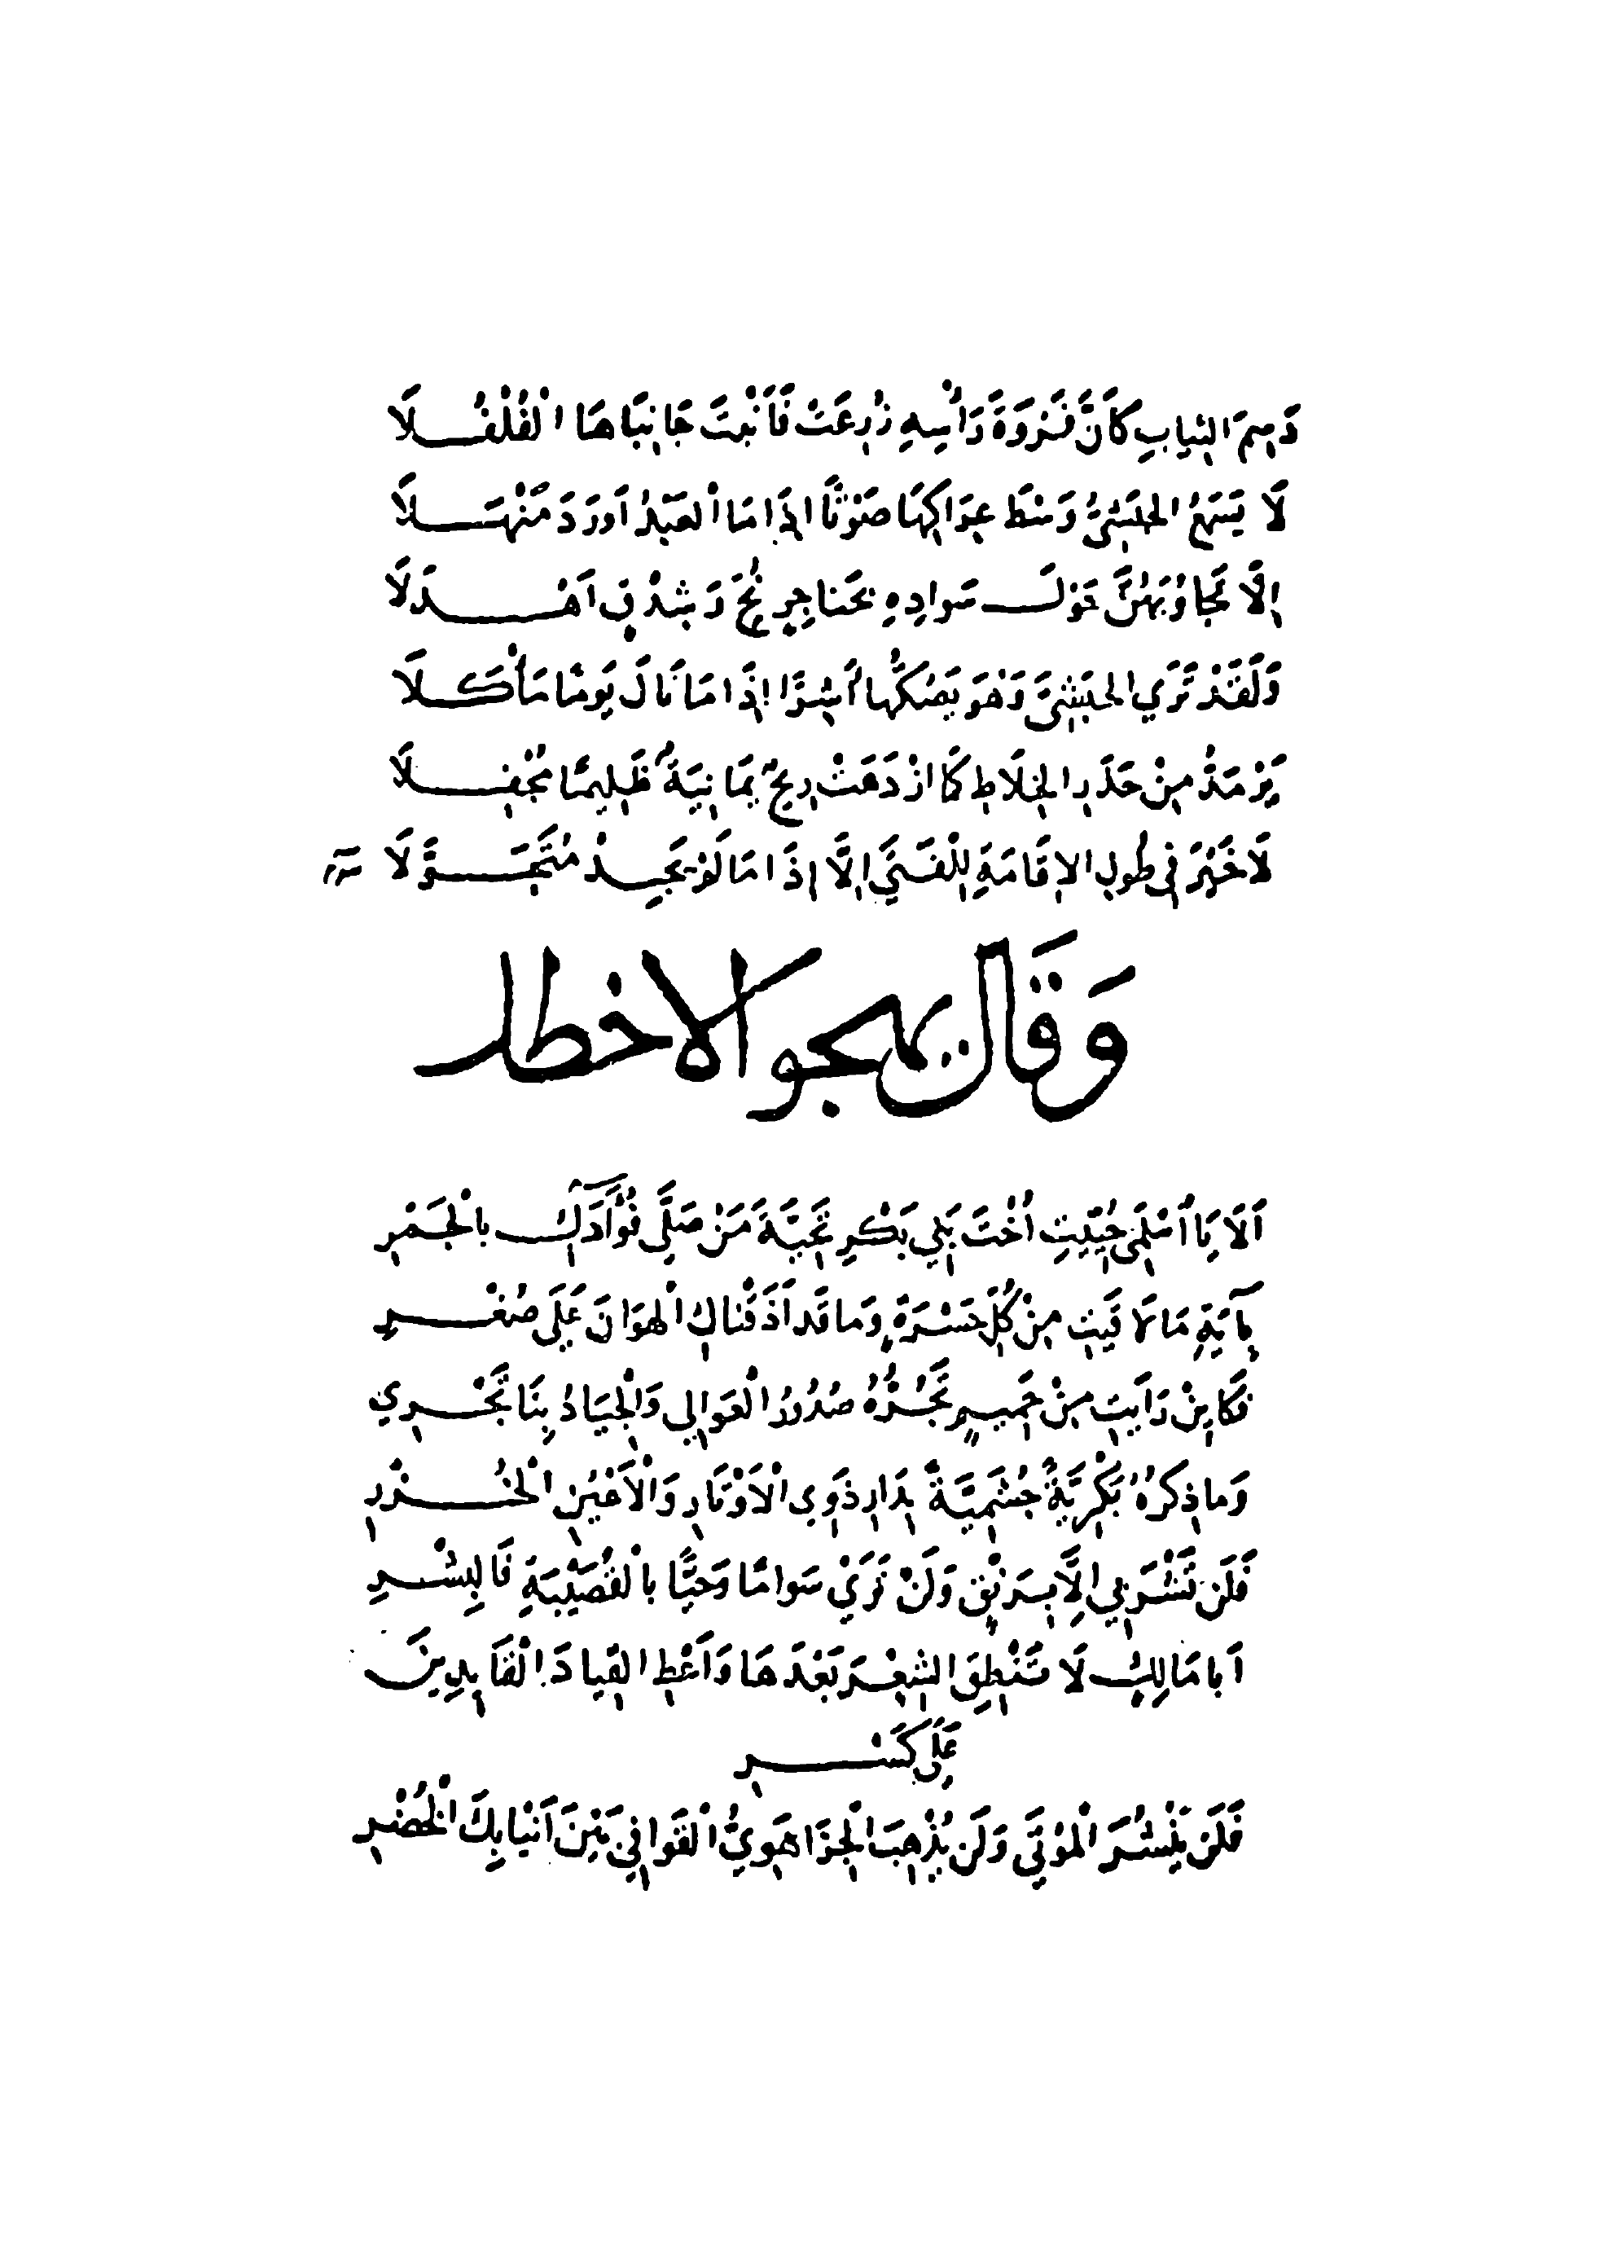 دَسِمَ الثِّيابِ كَأَنَّ فَرْوَةَ رَأْسِهِ زُرِعَتْ فَأَنْبَتَ جَانِبَاهَا الْفُلْفُلَا
لَا يَسْمَعُ الحَبَشِيُّ وَسْطَ عِرَاكِهَا صَوْتًا اِذَا مَا الْعَبْدُ اَوْرَدَ مَنْهَلَا
اِلَّا تَجَاوُبَهُنَّ حَوْلَ سَوادِهِ بحَناجِرٍ بُحٍّ وَشِدْقٍ اَهْدَلَا
وَلَقَدْ تَرَي الحَبَشِيَّ وَهْوَ يَصُكُّها أَشِرًا اِذَا مَا نَالَ يَومًا مَأْكَلَا
يَرْمَدُّ مِنْ حَذَرِ الخِلَاطِ كَمَا ازْدَهَتْ رِيحٌ يَمَانِيَةٌ ظَلِيمًا مُجْفِلَا
لَا خَيْرَ فِي طُولِ الاِقَامَةِ لِلْفَتَي اِلَّا اِذَا مَا لَمْ يَجِدْ مُتَحَوَّلَا
وَقَالَ يهجو الاخطل
اَلَا يَا اُسْلَمِي حُيِّيتِ اُخْتَ بَنِي بَكْرِ تَحِيَّةَ مَنْ صَلَّي فُؤَادَكِ بالْجَمْرِ
بِآيَةِ مَا لَاقَيتِ مِنْ كُلِّ حَسْرَةٍ وَمَا قَد اَذَقْنَاكِ الْهوَانَ عَلَي صُغْرِ
فَكَايِنْ رَاَيتِ مِنْ حَمِيمٍ تَجُرُّهُ صُدُورُ الْعَوَالِي وَالْجِيَادُ بِنَا تَجْرِي
وَما ذِكرُهُ بَكْرِيَّةً جُشَمِيَّةً بِدَارِ ذَوِي الْاَوْتَارِ وَالْاَعْيُنِ الْخُزْرِ
فَلَن تَشْرَبِي اِلَّا بِرَنْقٍ وَلَنْ تَرَيْ سَوامًا وَحَيًّا بالْقُصَيْبَةِ فَالبِشْرِ
اَبا مَالِكٍ لَا تَنْطِقِ الشِعْرَ بَعْدَهَا وَاَعْطِ القِيادَ الْقَايِدِينَ
عَلَي كَسْرِ
فَلَنْ يَنْشُرَ الْمَوْتَي وَلَن يُذْهِبَ الْجِزَا هَوِيُّ الْقَوافِي بَيْنَ اَنْيَابِكَ الْخُضْرِ